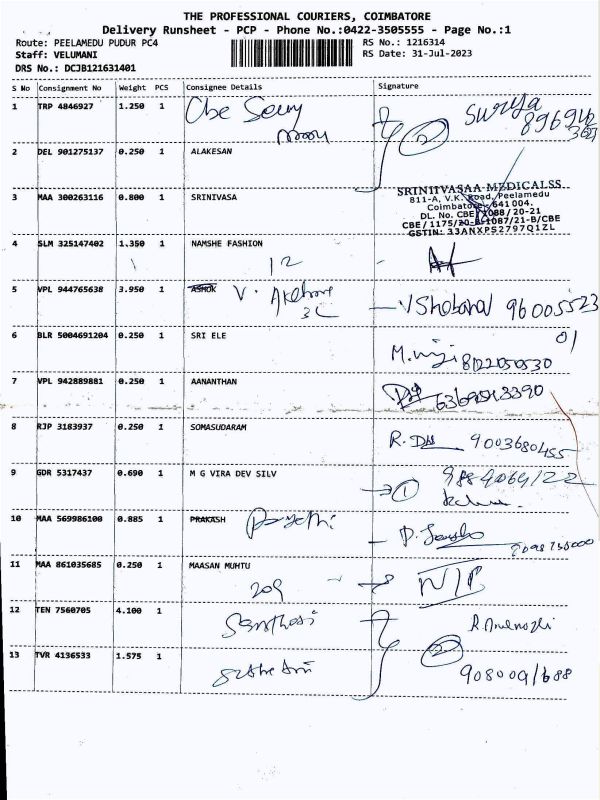 THE PROFESSIONAL COURIERS, COIMBATORE
Delivery Runsheet - PCP - Phone No.:0422-3505555 - Page No.:1
Route: PEELAMEDU PUDUR PC4 RS No.: 1216314
Staff: VELUMANI RS Date: 31-Jul-2023
DRS No.: DCJB121631401
S No Consignment No Weight PCS Consignee Details Signature
1 TRP 4846927 1.250 1 Surya
2 DEL 901275137 0.250 1 ALAKESAN 2
3 MAA 300263116 0.800 1 SRINIVASA
SRINIIVASAA MEDICALSS
811-A, V.K. Road, Peelamedu
Coimbatore 641 004.
DL. No. CBE 1088/20-21
CBE/1175/20-B-1087/21-B/CBE
GSTIN: 33ANXPS2797Q1ZL
4 SLM 325147402 1.350 1 NAMSHE FASHION
12
5 VPL 944765638 3.950 1 ASHOK V.
3C
6 BLR 5004691204 0.250 1 SRI ELE
8122050530
7 VPL 942889881 0.250 1 AANANTHAN
8 RJP 3183937 0.250 1 SOMASUDARAM
R. 9003680455
9 GDR 5317437 0.690 1 M G VIRA DEV SILV
1
10 MAA 569986100 0.885 1 PRAKASH
11 MAA 861035685 0.250 1 MAASAN MUHTU
209
12 TEN 7560705 4.100 1 Santhosi
13 TVR 4136533 1.575 1 2